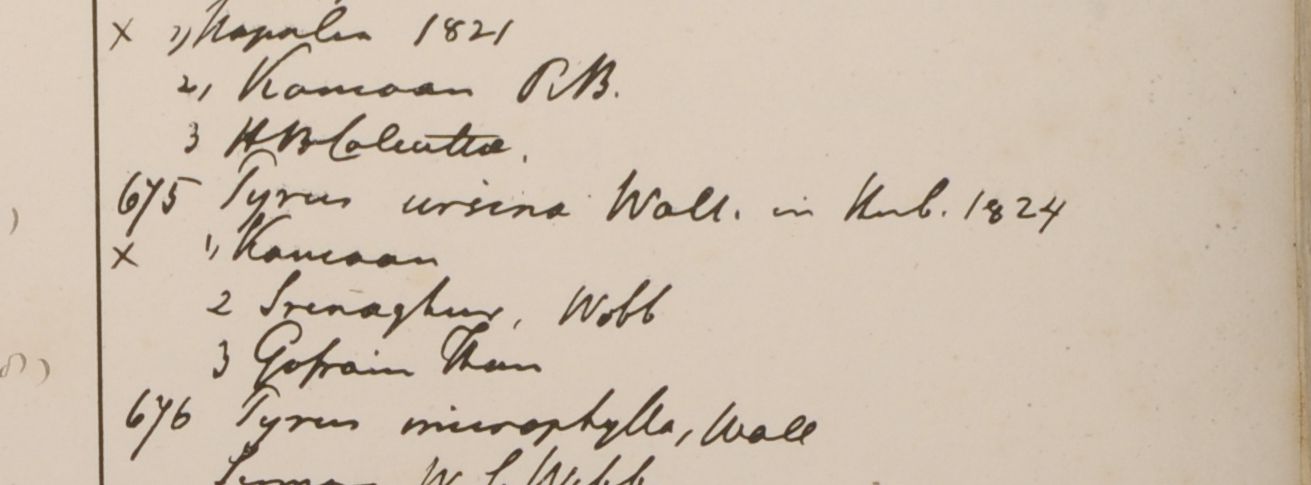 x 1, Napalia 1821
2, Kamoan R.B.
3 HBCalcutta.
675 Pyrus ursina Wall. in Herb. 1824
x 1, Kamaoan
2 Srenaghur, Webb
3 Gosain Than
676 Pyrus microphylla, Wall
W. S. Webb